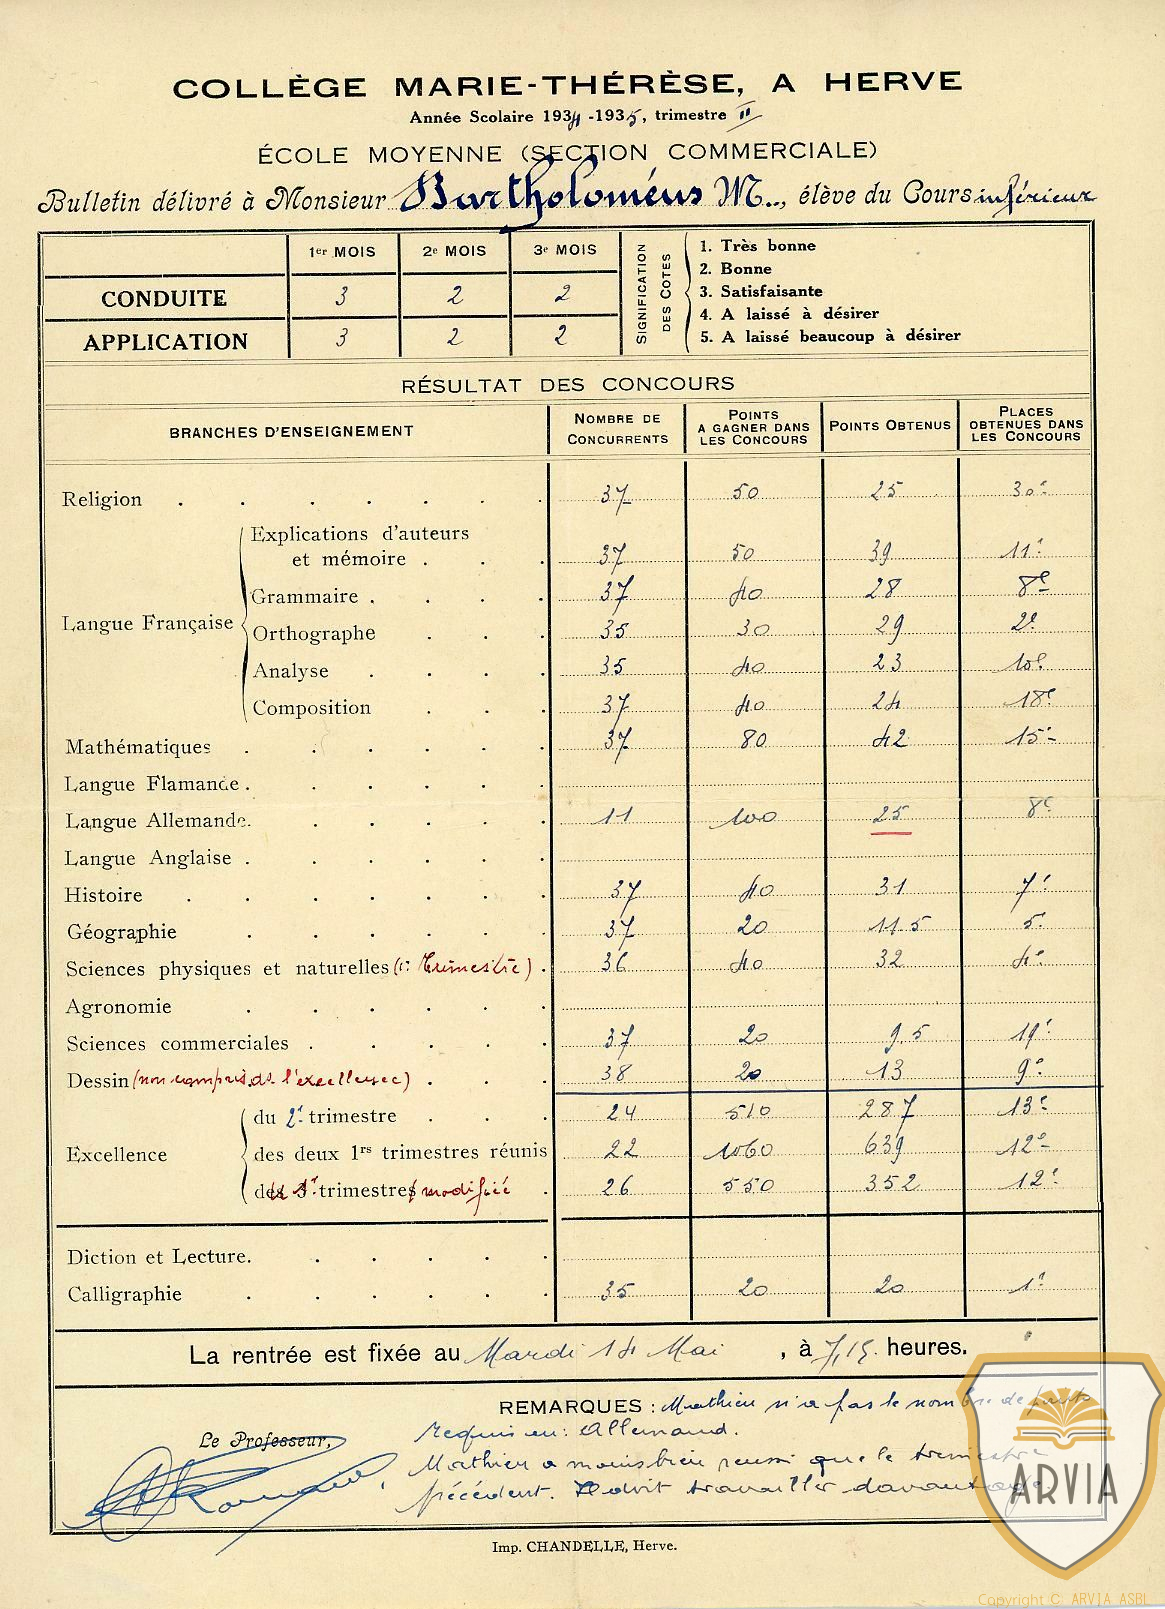 COLLÈGE MARIE-THÉRÈSE, A HERVE
Année Scolaire 1934-1935, trimestre II
ÉCOLE MOYENNE (SECTION COMMERCIALE)
Bulletin délivré à Monsieur Bartholoméus M.., élève du Cours inférieur
1er MOIS 2e MOIS 3e MOIS
CONDUITE 3 2 2
APPLICATION 3 2 2
SIGNIFICATION DES COTES
1. Très bonne
2. Bonne
3. Satisfaisante
4. A laissé à désirer
5. A laissé beaucoup à désirer
RÉSULTAT DES CONCOURS
BRANCHES D'ENSEIGNEMENT NOMBRE DE CONCURRENTS POINTS A GAGNER DANS LES CONCOURS POINTS OBTENUS PLACES OBTENUES DANS LES CONCOURS
Religion 37 50 25 30e
Langue Française
Explications d'auteurs
et mémoire 37 50 39 11e
Grammaire 37 40 28 8e
Orthographe 35 30 29 2e
Analyse 35 40 23 10e
Composition 37 40 24 18e
Mathématiques 37 80 42 15e
Langue Flamande
Langue Allemande 11 100 25 8e
Langue Anglaise
Histoire 37 40 31 7e
Géographie 37 20 11.5 5e
Sciences physiques et naturelles (1r trimestre) 36 40 32 4e
Agronomie
Sciences commerciales 37 20 9.5 19e
Dessin (non compris ds l'excellence) 38 20 13 9e
Excellence
du 2e trimestre 24 510 287 13e
des deux 1rs trimestres réunis 22 1060 639 12e
du 1r trimestre modifiée 26 550 352 12e
Diction et Lecture.
Calligraphie 35 20 20 1r
La rentrée est fixée au Mardi 14 Mai, à 7,15 heures.
REMARQUES : Mathieu n'a pas le nombre de points
requis en : Allemand.
Mathieu a moins bien réussi que le trimestre
précédent. Il doit travailler davantage
Le Professeur,
Imp. CHANDELLE, Herve.
ARVIA
Copyright © ARVIA ASBL